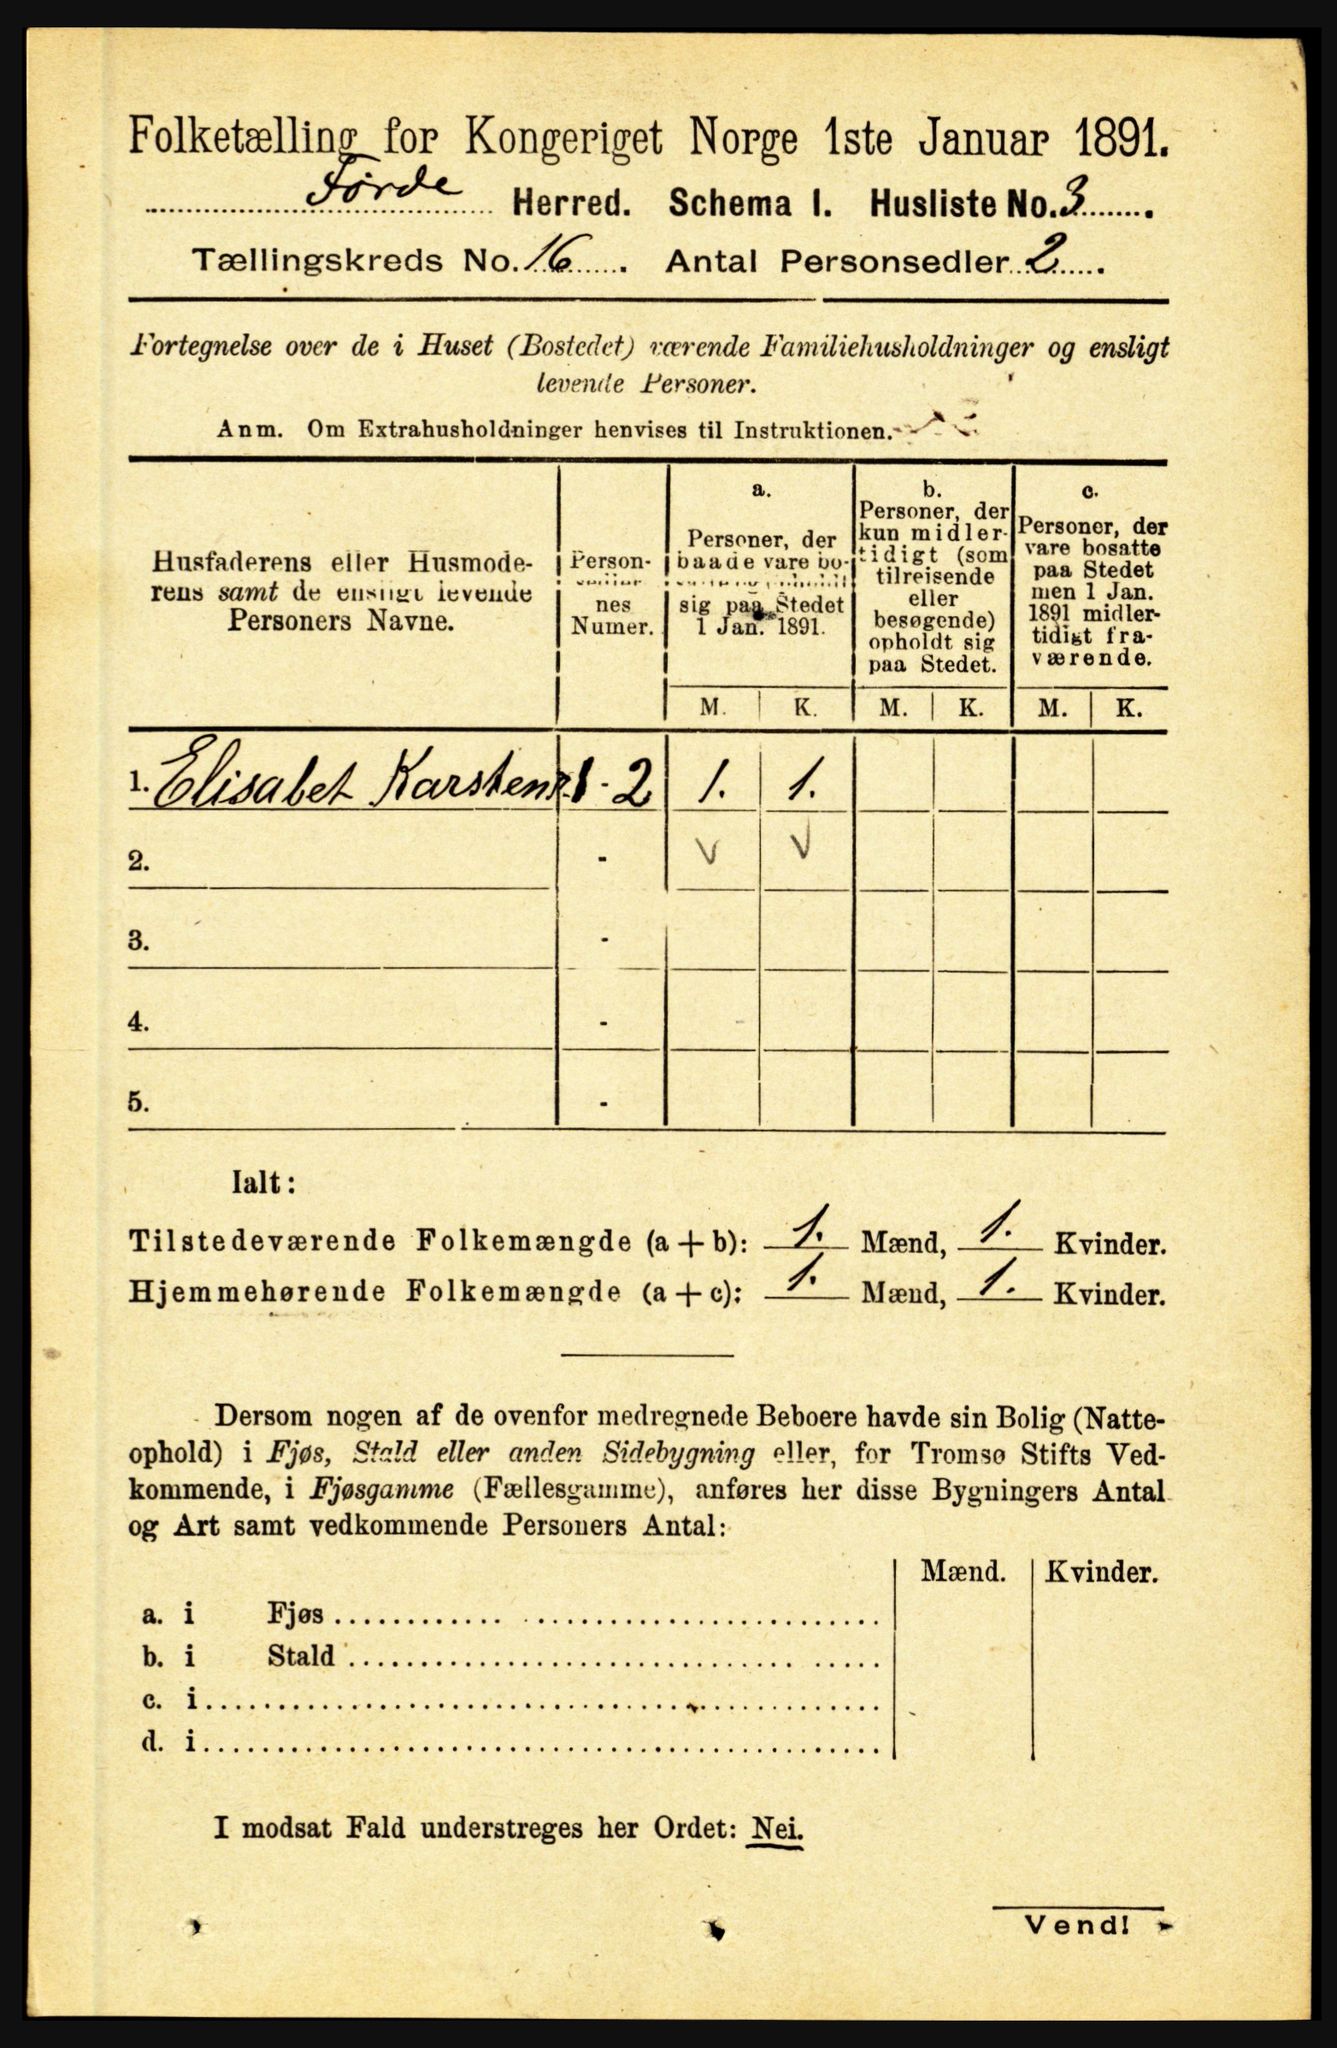 Folketælling for Kongeriget Norge 1ste Januar 1891.
Førde Herred. Schema I. Husliste No. 3
Tællingskreds No. 16. Antal Personsedler 2.
Fortegnelse over de i Huset (Bostedet) værende Familiehusholdninger og ensligt
levende Personer.
Anm. Om Extrahusholdninger henvises til Instruktionen.
Husfaderens eller Husmode-
rens samt de ensligt levende
Personers Navne.
Person-
nes
Numer.
a.
Personer, der
baade vare bo-
sig paa Stedet
1 Jan. 1891.
b.
Personer, der
kun midler-
tidigt (som
tilreisende
eller
besøgende)
opholdt sig
paa Stedet.
c.
Personer, der
vare bosatte
paa Stedet
men 1 Jan.
1891 midler-
tidigt fra-
værende.
M. K. M. K. M. K.
1. Elisabet Karstens 1 - 2 1. 1.
2. - v v
3. -
4. -
5. -
Ialt:
Tilstedeværende Folkemængde (a + b): 1. Mænd, 1. Kvinder.
Hjemmehørende Folkemængde (a + c): 1. Mænd, 1. Kvinder.
Dersom nogen af de ovenfor medregnede Beboere havde sin Bolig (Natte-
ophold) i Fjøs, Stald eller anden Sidebygning eller, for Tromsø Stifts Ved-
kommende, i Fjøsgamme (Fællesgamme), anføres her disse Bygningers Antal
og Art samt vedkommende Personers Antal:
Mænd. Kvinder.
a. i Fjøs
b. i Stald
c. i
d. i
I modsat Fald understreges her Ordet: Nei.
Vend!